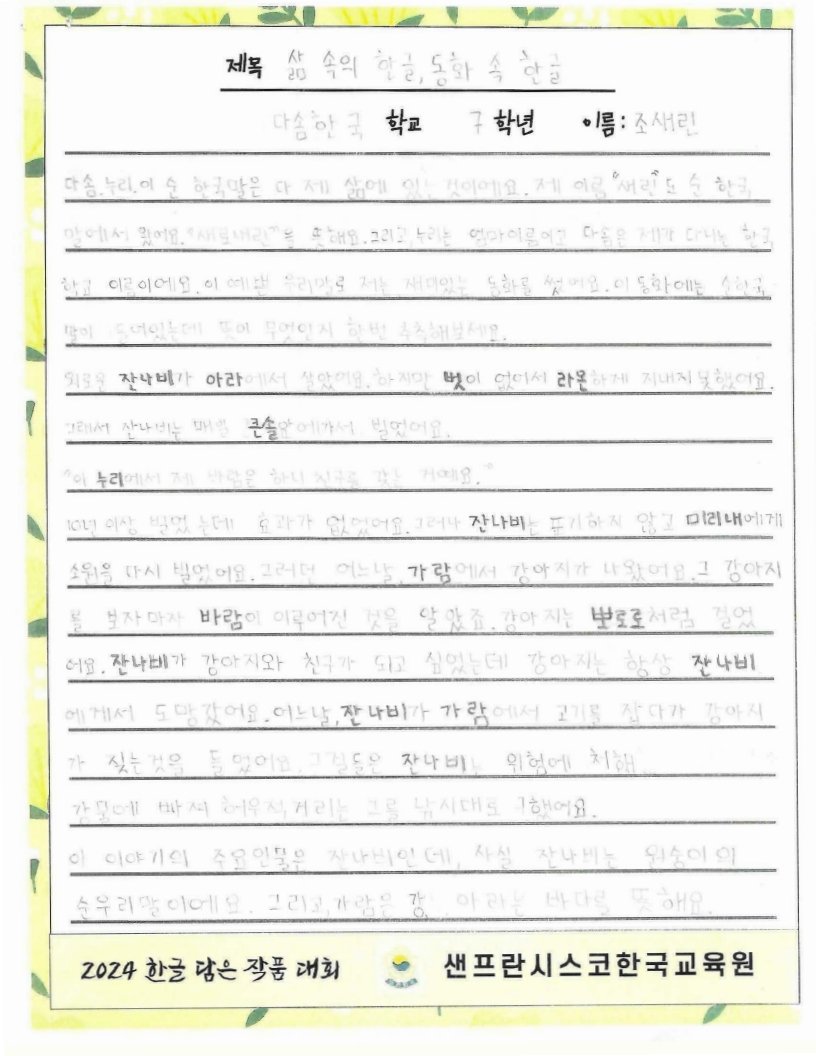 제목 삶 속의 한글, 동화 속 한글
다솜한국 학교 7 학년 이름: 조새린
다솜.누리.이 순 한국말은 다 제 삶에 있는것이에요. 제 이름 "새린"도 순 한국
말에서 왔어요. "새로내린"을 뜻해요. 그리고, 누리는 엄마이름이고 다솜은 제가 다니는 한국
학교 이름이에요. 이 예쁜 우리말로 저는 재미있는 동화를 썼어요. 이 동화에는 순한국
말이 들어있는데 뜻이 무엇인지 한번 추측해보세요.
외로운 잔나비가 아라에서 살았어요. 하지만 벗이 없어서 라온하게 지내지 못했어요.
그래서 잔나비는 매일 큰솔앞에가서 빌었어요.
"이 누리에서 제 바람은 하나 친구를 갖는 거예요."
10년 이상 빌었는데 효과가 없었어요. 그러나 잔나비는 포기하지 않고 미리내에게
소원을 다시 빌었어요. 그러던 어느날, 가람에서 강아지가 나왔어요. 그 강아지
를 보자마자 바람이 이루어진 것을 알았죠. 강아지는 뽀로로처럼 걸었
어요. 잔나비가 강아지와 친구가 되고 싶었는데 강아지는 항상 잔나비
에게서 도망갔어요. 어느날, 잔나비가 가람에서 고기를 잡다가 강아지
가 짖는것을 들었어요. 그걸들은 잔나비는 위험에 처해
강물에 빠져 허우적거리는 그를 낚시대로 구했어요.
이 이야기의 주요인물은 잔나비인데, 사실 잔나비는 원숭이의
순우리말이에요. 그리고, 가람은 강, 아라는 바다를 뜻해요.
2024 한글 담은 작품 대회 샌프란시스코한국교육원